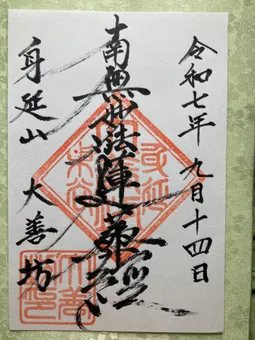 令和七年 九月十四日
南無妙法蓮華経
身延山 大善坊